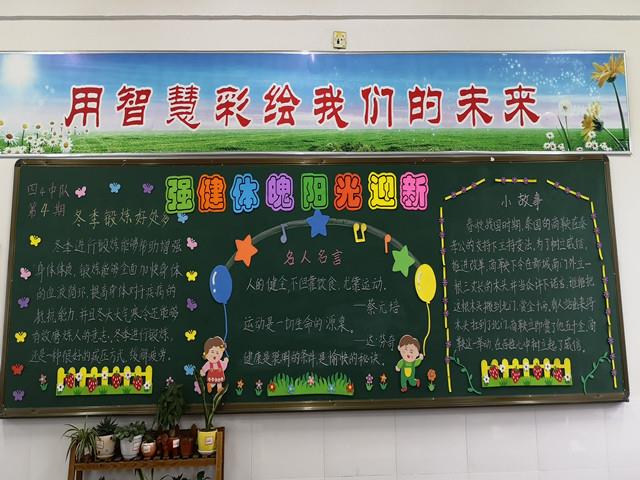 用智慧彩绘我们的未来
强健体魄阳光迎新
四4中队
第4期
冬季锻炼好处多
冬季进行锻炼能够帮助增强
身体体质，锻炼能够全面加快身体
的血液循环，提高身体对于疾病的
抵抗能力，并且冬天天气寒冷还能够
有效磨炼人的意志，冬季进行锻炼，
还是一种很好的减压方式，缓解疲劳。
名人名言
人的健全，不但靠饮食，尤靠运动。
——蔡元培
运动是一切生命的源泉。
——达·芬奇
健康是聪明的条件，是愉快的秘诀。
小故事
春秋战国时期，秦国的商鞅在秦
孝公的支持下主持变法，为了树立威信，
推进改革，商鞅下令在都城南门外立一
根三丈长的木头，并当众许下诺言，谁能把
这根木头搬到北门，赏金十两，有人抬起来将
木头扛到了北门，商鞅立即赏了他五十金，商
鞅这一举动，在百姓心中树立起了威信。